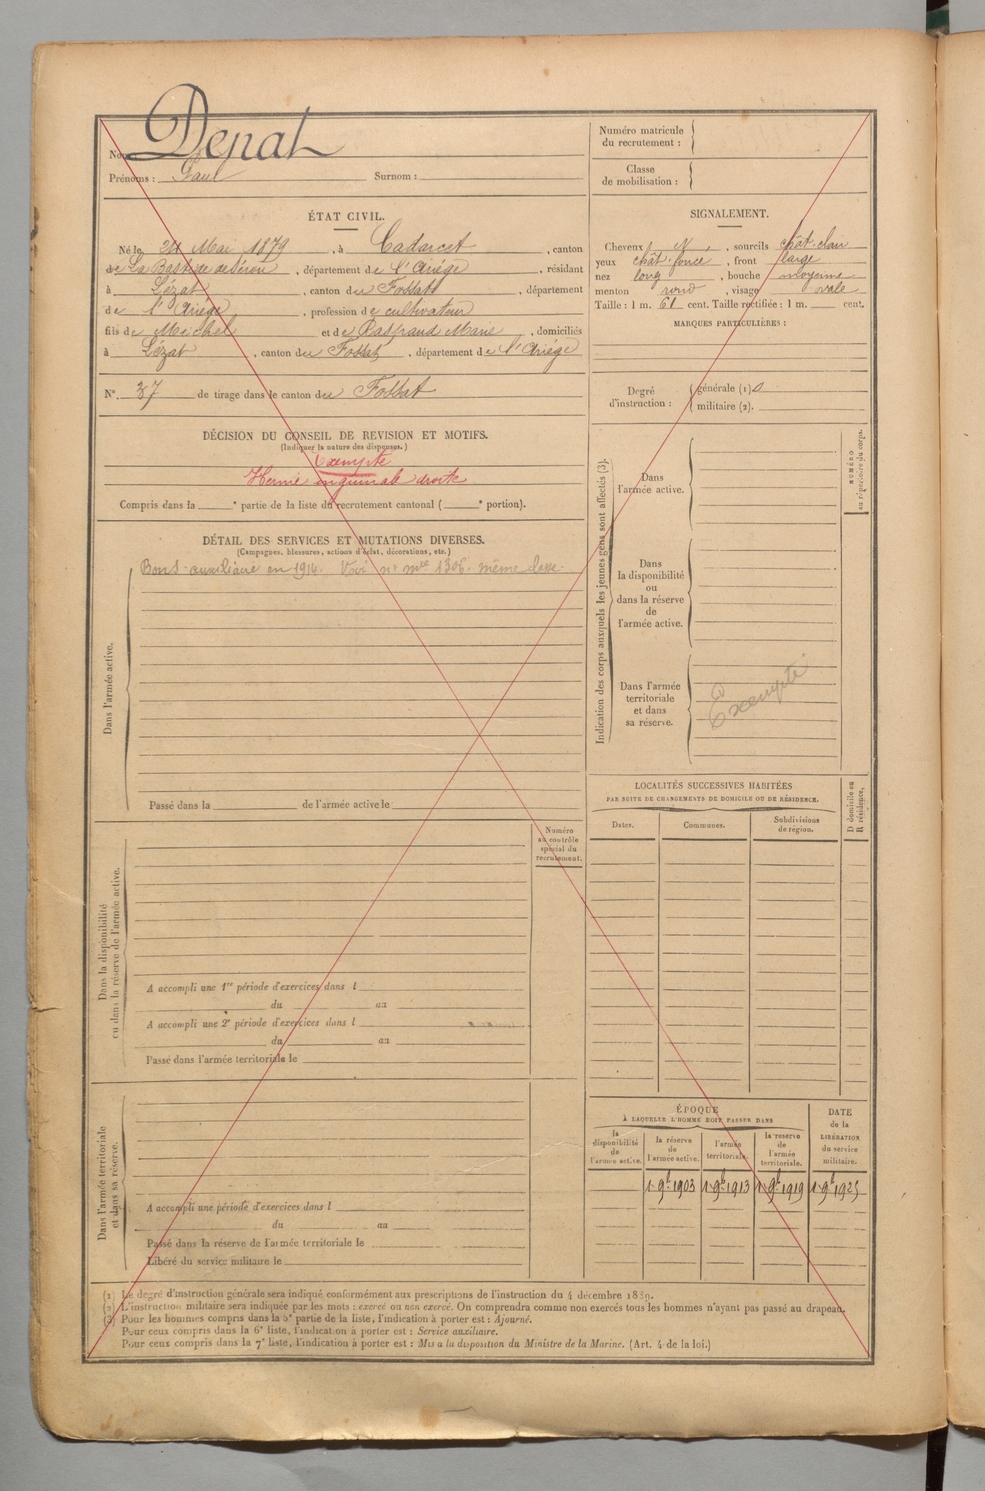 Nom : Depat
Prénoms : Paul Surnom :
ÉTAT CIVIL.
Né le 24 Mai 1879, à Cadarcet, canton
de La Bastide de Sérou, département de l'Ariége, résidant
à Lézat, canton du Fossat, département
de l'Ariége, profession de cultivateur
fils de Michel et de Marie, domiciliés
à Lézat, canton du Fossat, département de l'Ariége
N° 37 de tirage dans le canton du Fossat
DÉCISION DU CONSEIL DE REVISION ET MOTIFS.
(Indiquer la nature des dispenses.)
Exempté
Hernie inguinale droite
Compris dans la ° partie de la liste du recrutement cantonal ( ° portion).
DÉTAIL DES SERVICES ET MUTATIONS DIVERSES.
(Campagnes, blessures, actions d'éclat, décorations, etc.)
Dans l'armée active.
Bons auxiliaire en 1914. Voir n° mle 1306 même classe.
Passé dans la de l'armée active le
Numéro
au contrôle
spécial du
recrutement.
Dans la disponibilité
ou dans la réserve de l'armée active.
A accompli une 1re période d'exercices dans l
du au
A accompli une 2e période d'exercices dans l
du au
Passé dans l'armée territoriale le
Dans l'armée territoriale
et dans sa réserve.
A accompli une période d'exercices dans l
du au
Passé dans la réserve de l'armée territoriale le
Libéré du service militaire le
Numéro matricule
du recrutement :
Classe
de mobilisation :
SIGNALEMENT.
Cheveux N, sourcils chât. clair
yeux chât. foncé, front large
nez long, bouche moyenne
menton rond, visage ovale
Taille : 1 m. 61 cent. Taille rectifiée : 1 m. cent.
MARQUES PARTICULIÈRES :
Degré
d'instruction :
générale (1) 0
militaire (2).
Indication des corps auxquels les jeunes gens sont affectés (3).
NUMÉRO
au répertoire du corps.
Dans
l'armée active.
Dans
la disponibilité
ou
dans la réserve
de
l'armée active.
Dans l'armée
territoriale
et dans
sa réserve.
Exempté
LOCALITÉS SUCCESSIVES HABITÉES
PAR SUITE DE CHANGEMENTS DE DOMICILE OU DE RÉSIDENCE.
D domicile ou
R résidence.
Dates. Communes. Subdivisions
de région.
ÉPOQUE
À LAQUELLE L'HOMME DOIT PASSER DANS
DATE
de la
LIBÉRATION
du service
militaire.
la
disponibilité
de
l'armée active.
la réserve
de
l'armée active.
l'armée
territoriale.
la réserve
de
l'armée
territoriale.
1 9b 1903 1 9b 1913 1 9b 1919 1 9b 1925
(1) Le degré d'instruction générale sera indiqué conformément aux prescriptions de l'instruction du 4 décembre 1889.
(2) L'instruction militaire sera indiquée par les mots : exercé ou non exercé. On comprendra comme non exercés tous les hommes n'ayant pas passé au drapeau.
(3) Pour les hommes compris dans la 5e partie de la liste, l'indication à porter est : Ajourné.
Pour ceux compris dans la 6e liste, l'indication à porter est : Service auxiliaire.
Pour ceux compris dans la 7e liste, l'indication à porter est : Mis à la disposition du Ministre de la Marine. (Art. 4 de la loi.)